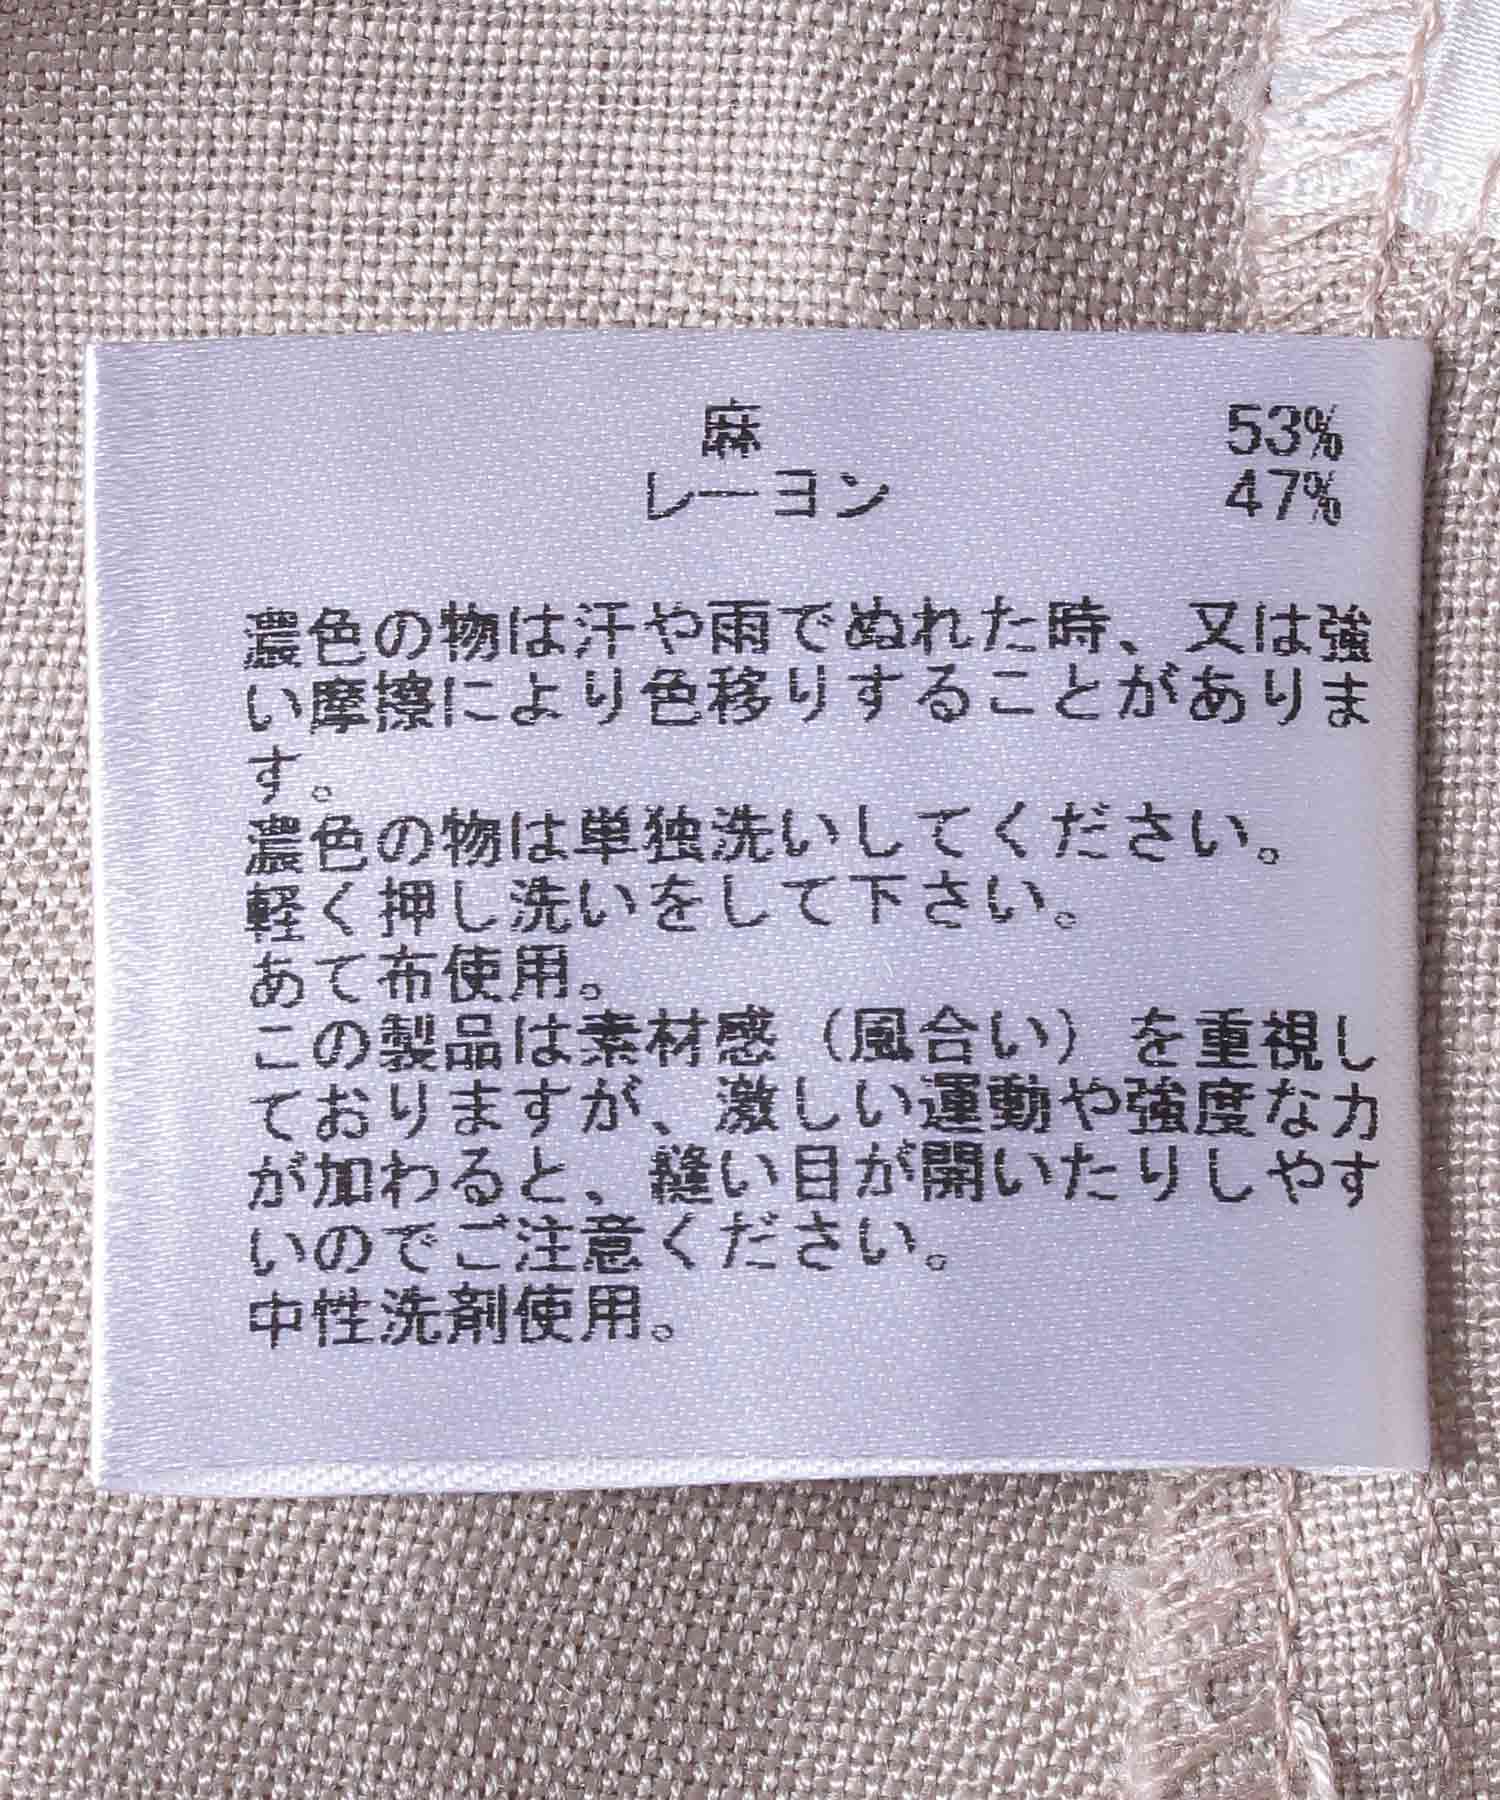 麻 53%
レーヨン 47%
濃色の物は汗や雨でぬれた時、又は強
い摩擦により色移りすることがありま
す。
濃色の物は単独洗いしてください。
軽く押し洗いをして下さい。
あて布使用。
この製品は素材感（風合い）を重視し
ておりますが、激しい運動や強度な力
が加わると、縫い目が開いたりしやす
いのでご注意ください。
中性洗剤使用。